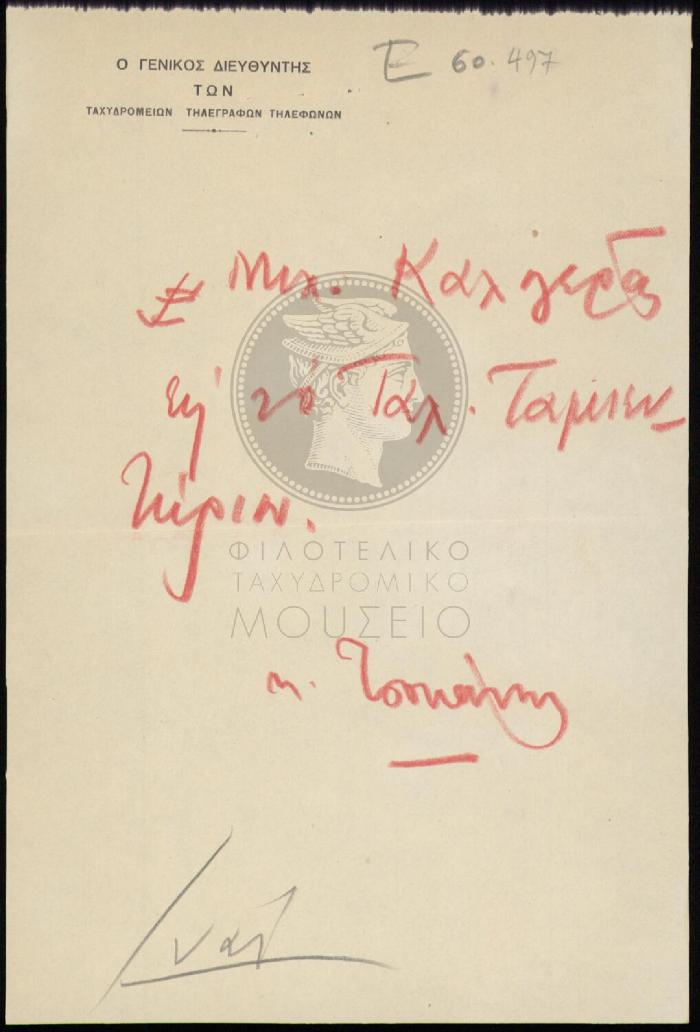 Ο ΓΕΝΙΚΟΣ ΔΙΕΥΘΥΝΤΗΣ
ΤΩΝ
ΤΑΧΥΔΡΟΜΕΙΩΝ ΤΗΛΕΓΡΑΦΩΝ ΤΗΛΕΦΩΝΩΝ
Ε 60.497
Μιχ. Καλγεράς
το Ταχ. Ταμιευ
τήριον.
ΦΙΛΟΤΕΛΙΚΟ
ΤΑΧΥΔΡΟΜΙΚΟ
ΜΟΥΣΕΙΟ
ναι